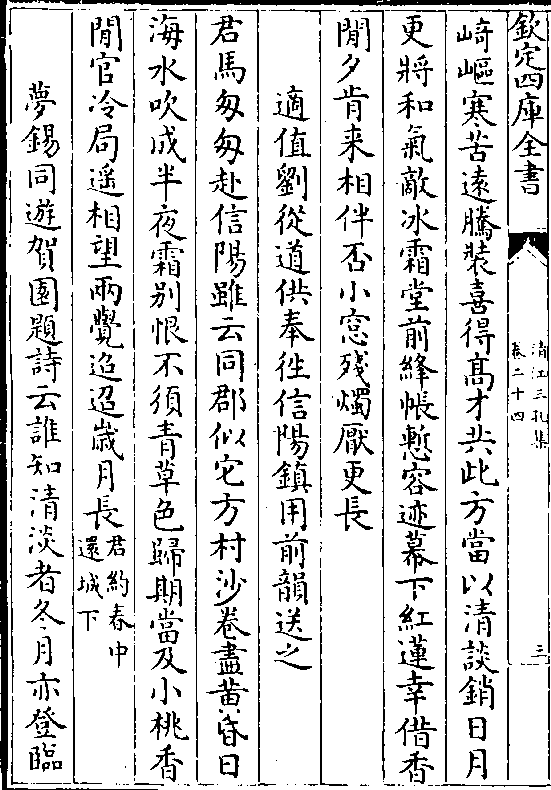 欽定四庫全書
清江三孔集
卷二十四
三
崎嶇寒苦逺騰裝喜得髙才共此方當以清談銷日月
更將和氣敵冰霜堂前絳帳慙容迹幕下紅蓮幸借香
閒夕肯来相伴否小窓殘燭厭更長
適值劉從道供奉徃信陽鎮用前韻送之
君馬匆匆赴信陽雖云同郡似它方村沙卷盡黄昏日
海水吹成半夜霜别恨不須青草色歸期當及小桃香
閒官冷局遥相望兩覺迢迢歳月長君約春中
還城下
夢錫同遊賀園題詩云誰知清淡者冬月亦登臨